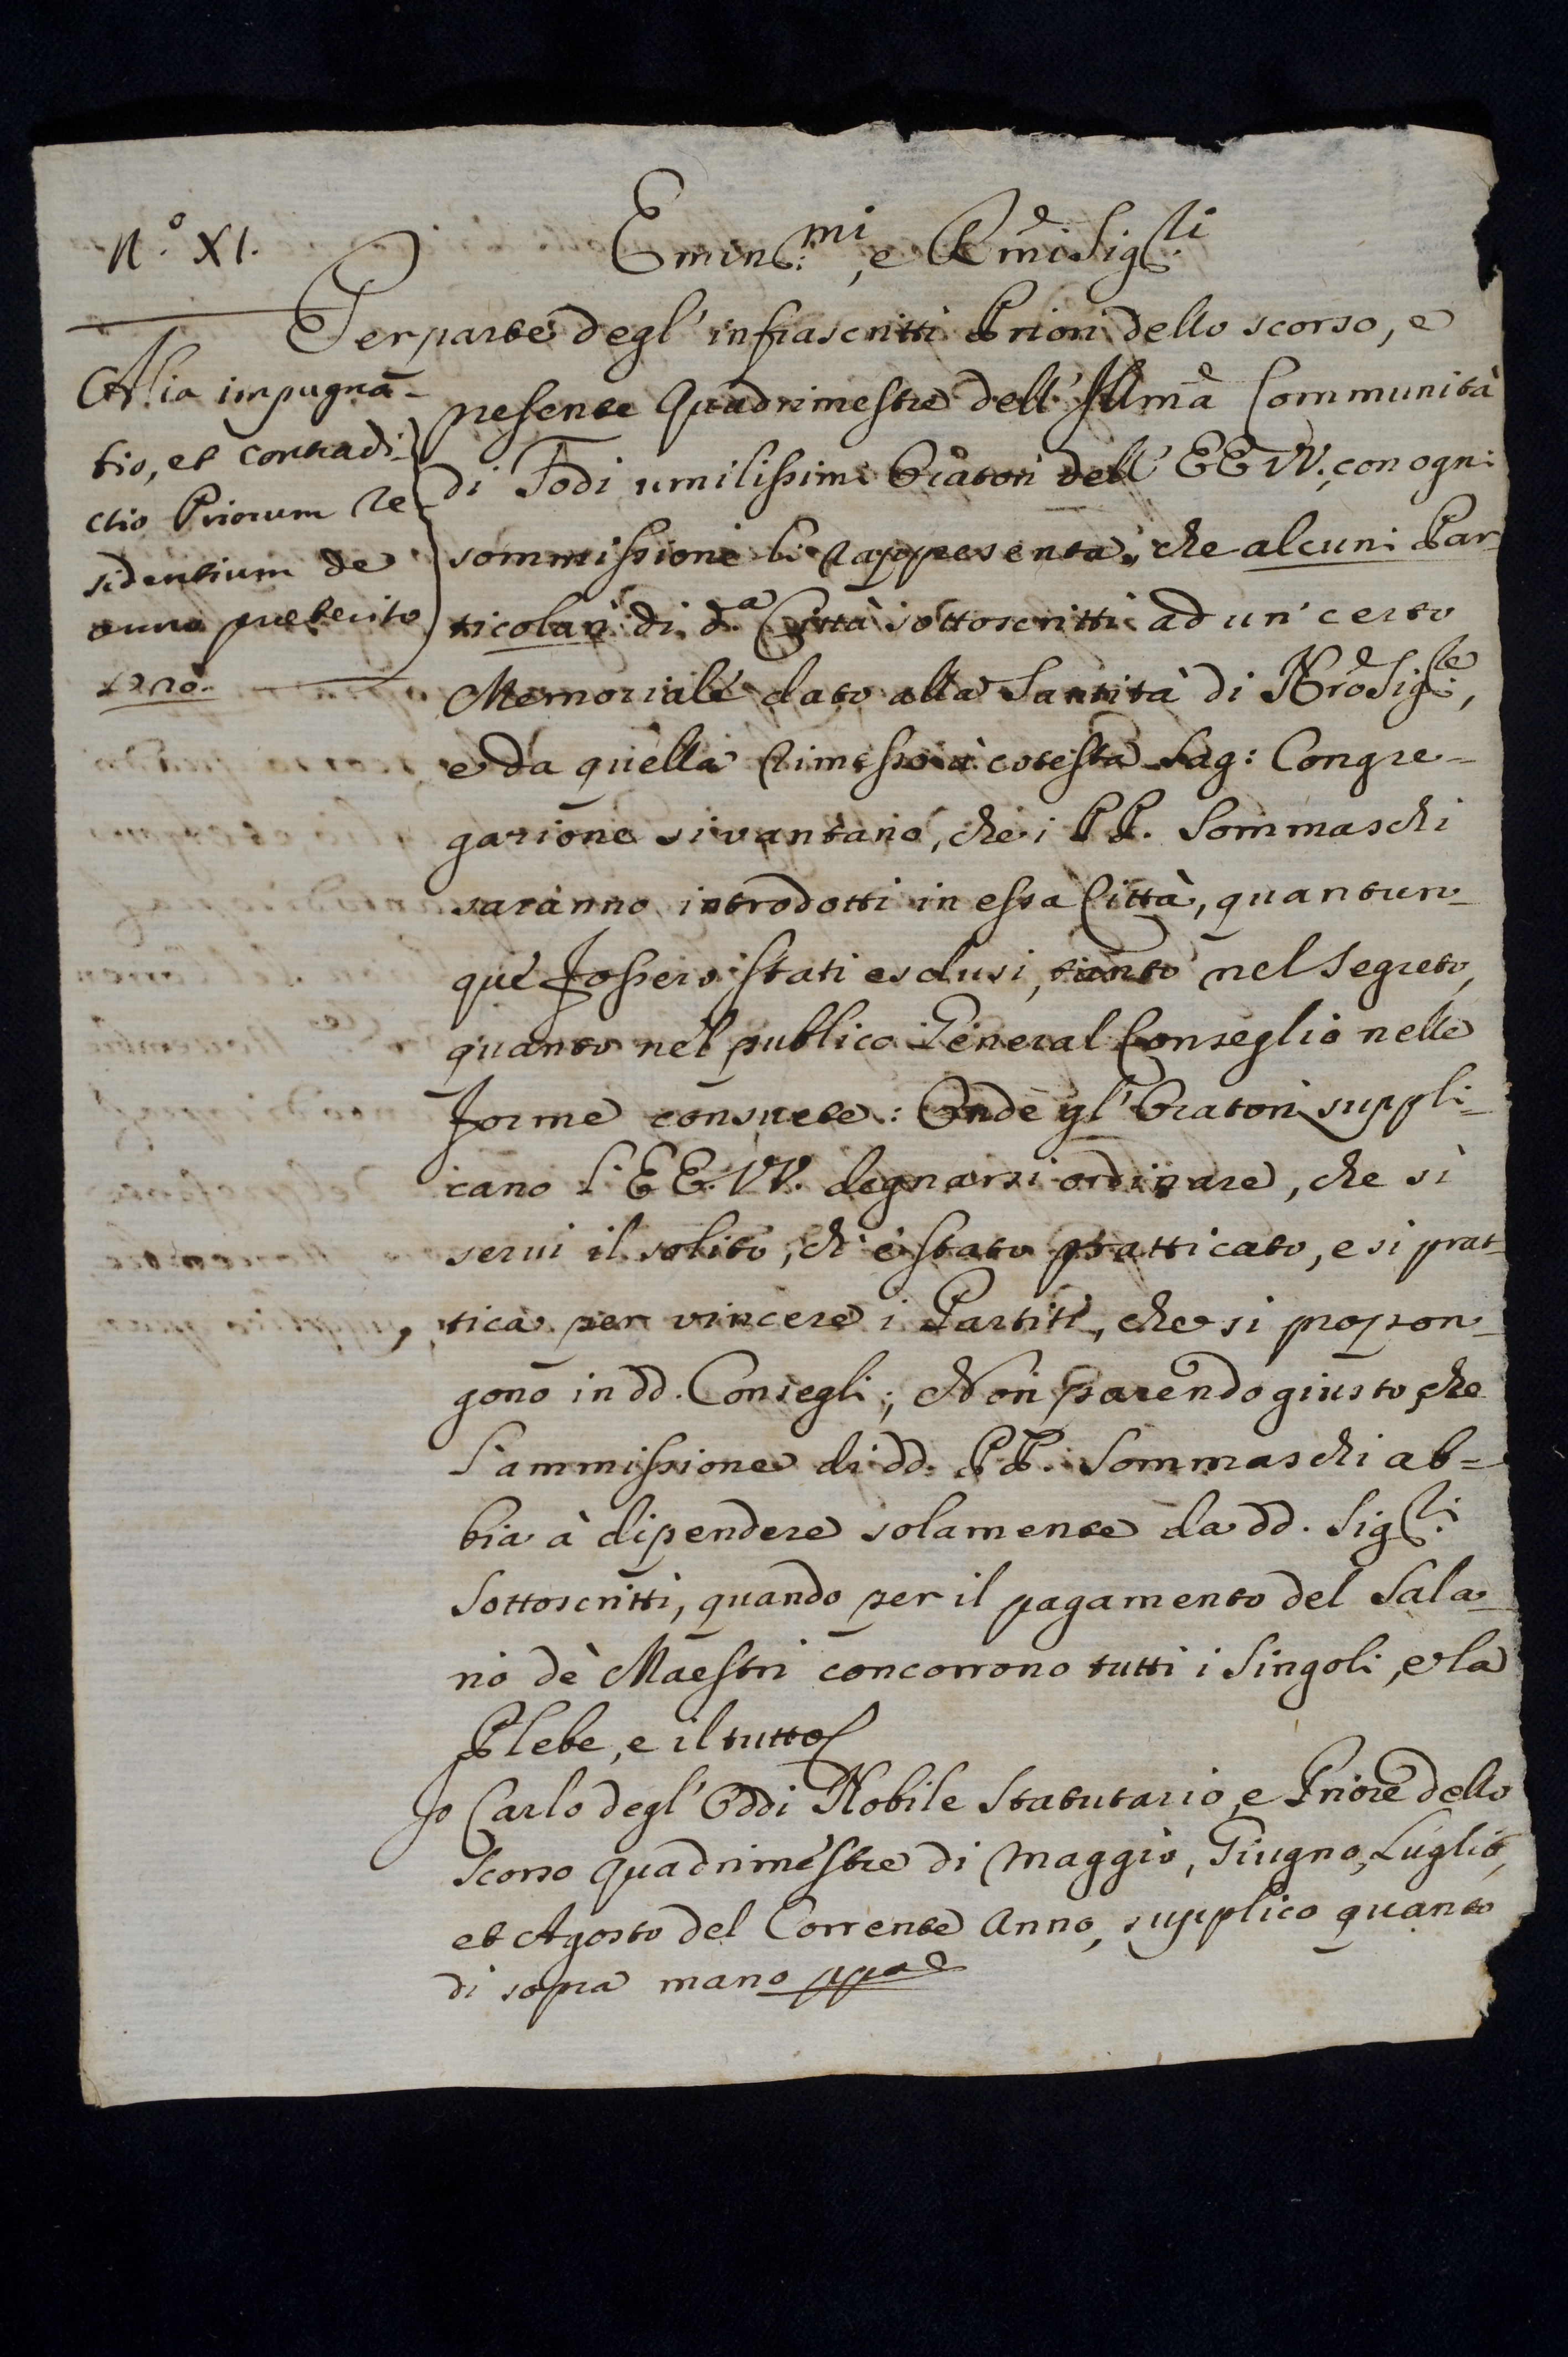 N.º XI.
Emin:mi, e Rmi Sig:ri
Alia impugna-
tio, et contradi-
ctio Priorum re-
sidentium de
anno preterito
Per parte degl' infrascritti Priori dello scorso, e
presente Quadrimestre dell' Illma Communità
di Todi umilissimi Oratori dell' EE VV, con ogni
sommissione li rappresenta, che alcuni Par-
ticolari di d.a Città sottoscritti ad un' certo
Memoriale dato alla Santità di Nro Sig:re,
e da quella rimesso à cotesta Sag: Congre-
gazione si vantano, che i PP. Sommaschi
saranno introdotti in essa Città, quantun-
que fossero stati esclusi, tanto nel segreto,
quanto nel publico General Conseglio nelle
forme consuete: Onde gl' Oratori suppli-
cano l' EE. VV. degnarsi ordinare, che si
servi il solito, ch' è stato pratticato, e si prat-
tica per vincere i Partiti, che si propon-
gono in dd. Consegli; Non parendo giusto che
l'ammissione di dd. PP. Sommaschi ab-
bia à dipendere solamente da dd. Sig:ri
Sottoscritti, quando per il pagamento del Sala-
rio dè Maestri concorrono tutti i Singoli, e la
Plebe, e il tutto
Io Carlo degl' Oddi Nobile Statutario, e Priore dello
Scorso quadrimestre di Maggio, Giugno, Luglio,
et Agosto del Corrente Anno, supplico quanto
di sopra mano ppa